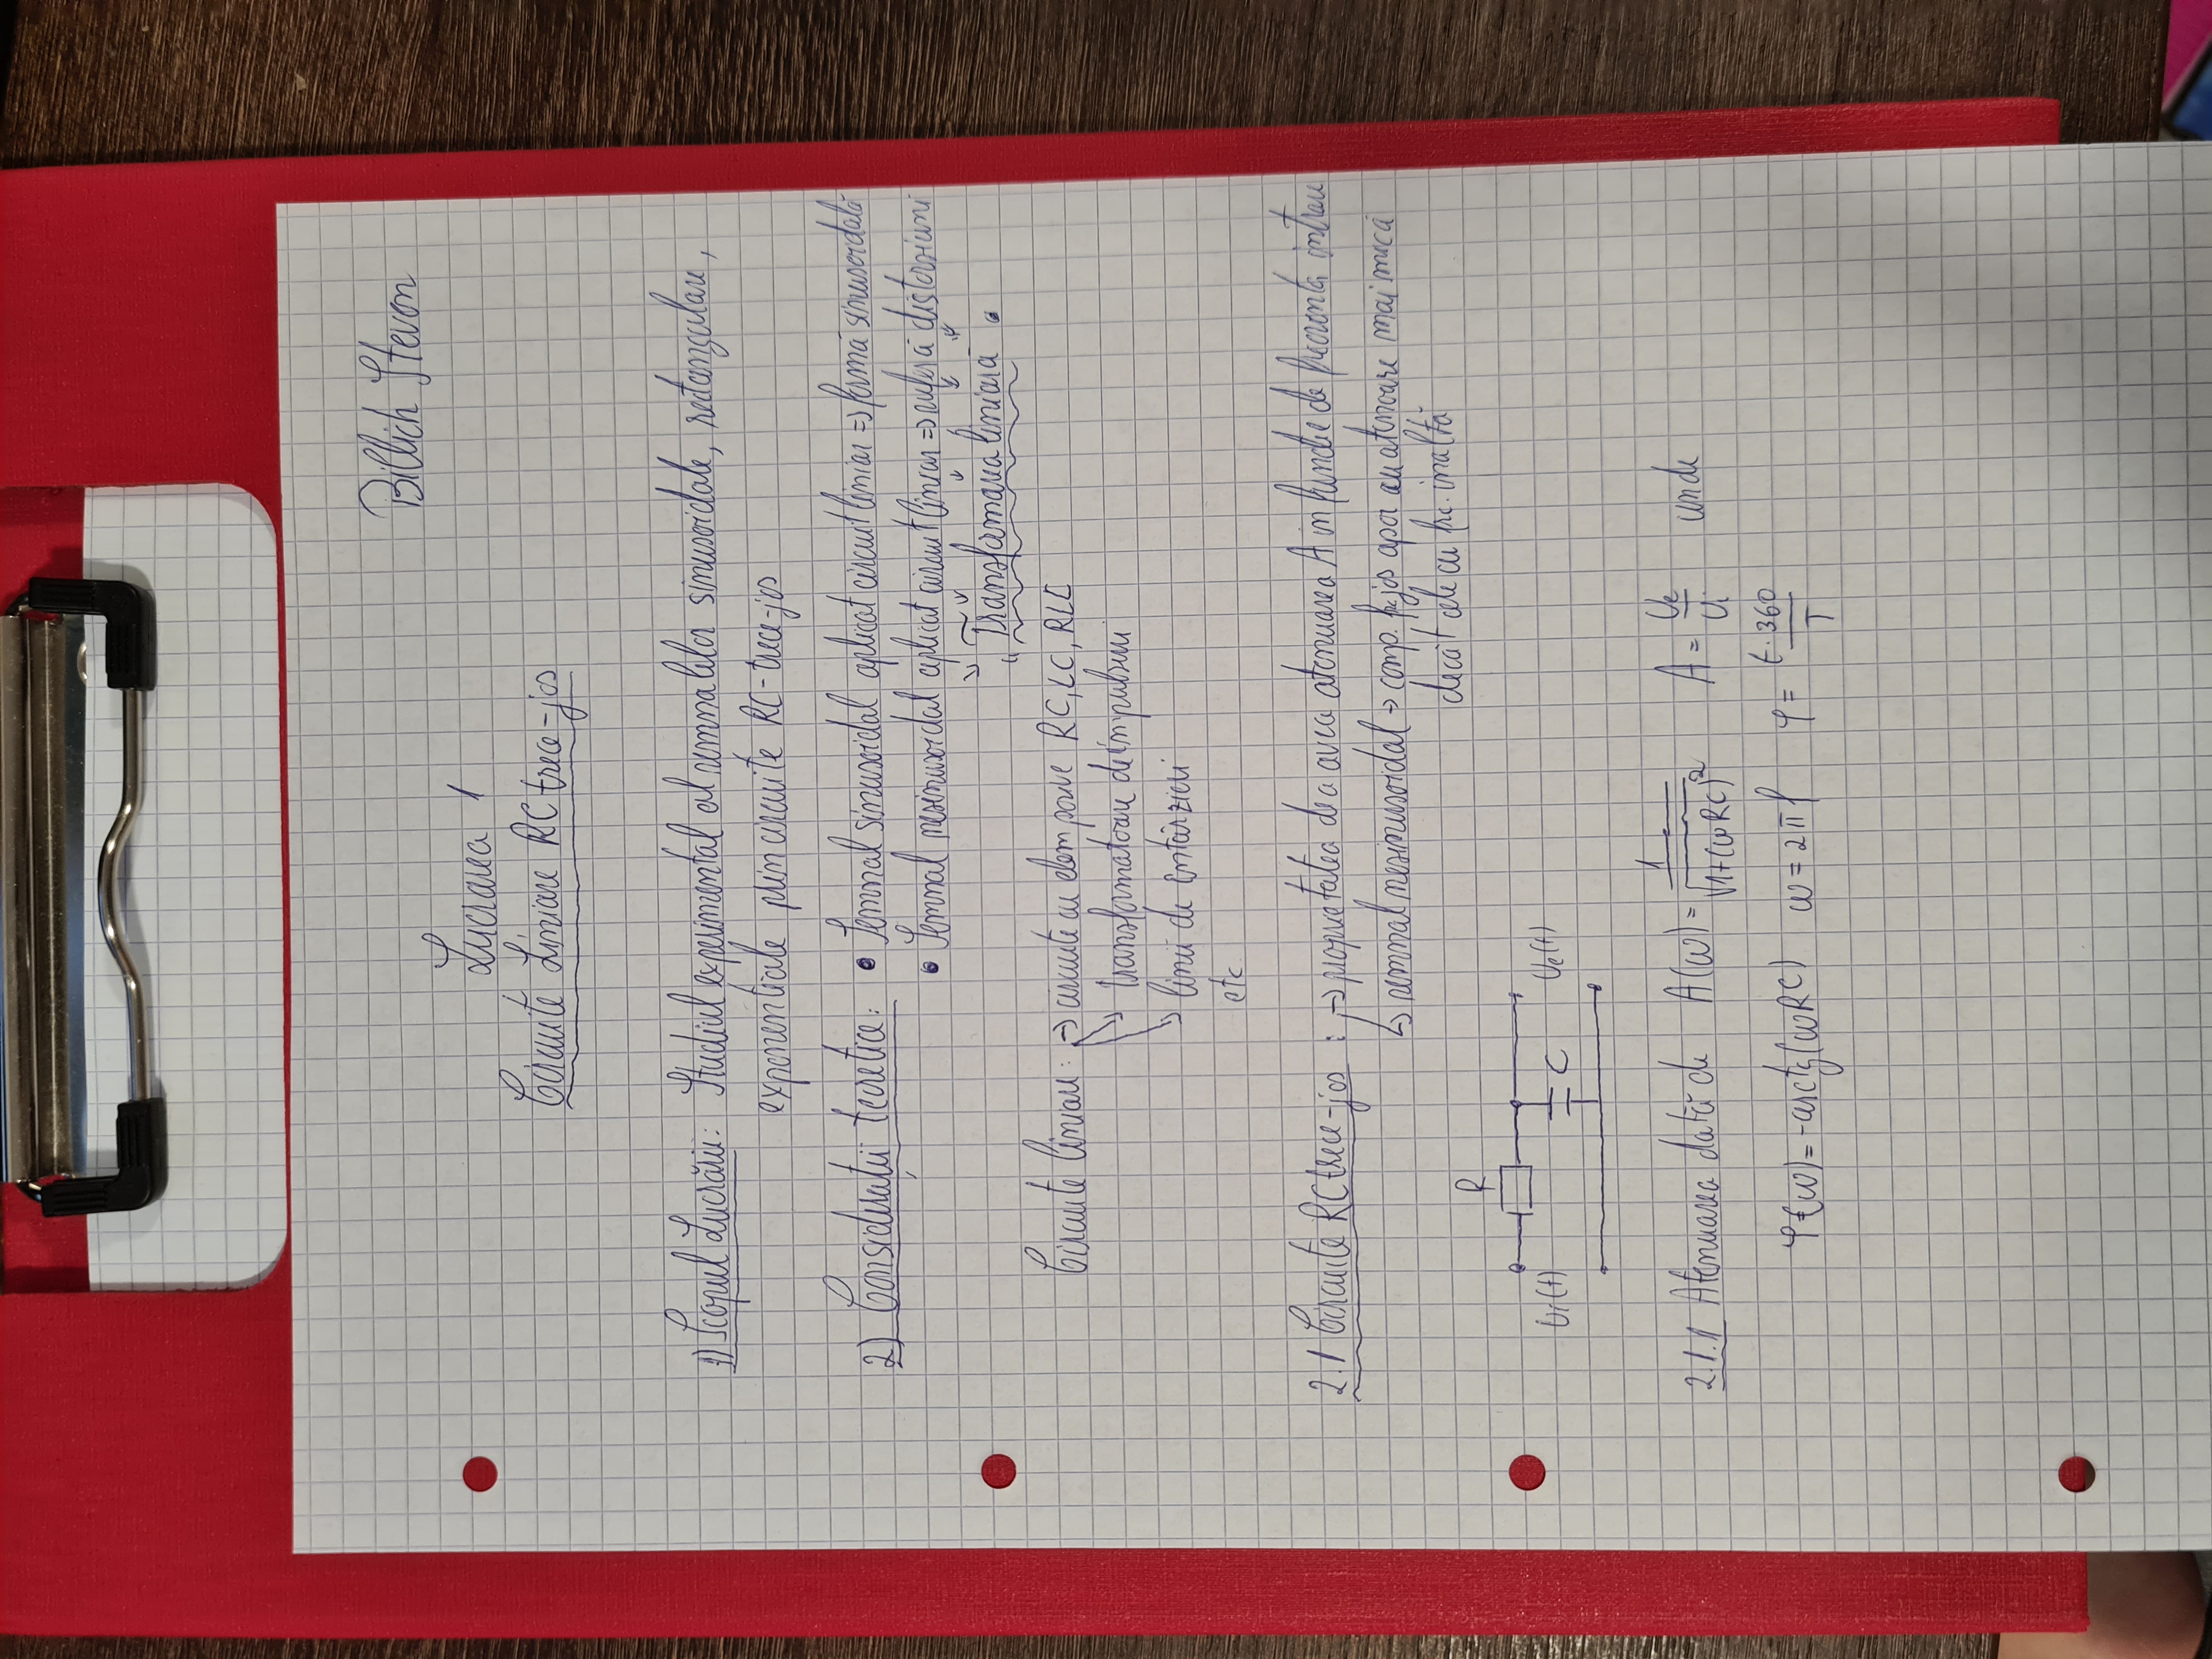 Billich Steven
Lucrarea 1
Circuite Liniare RC trece-jos
1) Scopul Lucrării: Studiul experimental al semnalelor sinusoidale, rectangulare,
exponentiale prin circuite RC-trece-jos
2) Considerații teoretice: • Semnal sinusoidal aplicat circuit liniar => formă sinusoidală
• Semnal nesinusoidal aplicat circuit liniar => suferă distorsiuni
„Transformarea liniară"
Circuite liniare: → circuite cu elem pasive RC, LC, RLC
→ transformatoare de impulsuri
→ linii de întârzieri
etc
2.1 Circuite RC trece-jos : → proprietatea de a avea atenuarea A in functie de frecventa intrare
↳ semnal nesinusoidal → comp. jos apar cu atenuare mai mica
decât cele cu frec. inaltă
R
Ui(t) C Ue(t)
2.1.1 Atenuarea dată de A(ω) = 1/√1+(ωRC)² A = Ue/Ui unde
φ(ω) = -arctg(ωRC) ω = 2πf φ = t·360/T